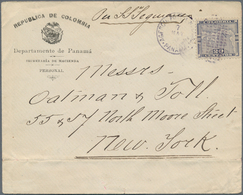 REPUBLICA DE COLOMBIA
Departamento de Panamá
SECRETARIA DE HACIENDA
PERSONAL
Messrs
Oatman & Toll.
55 & 57 North Moore Street
New York.